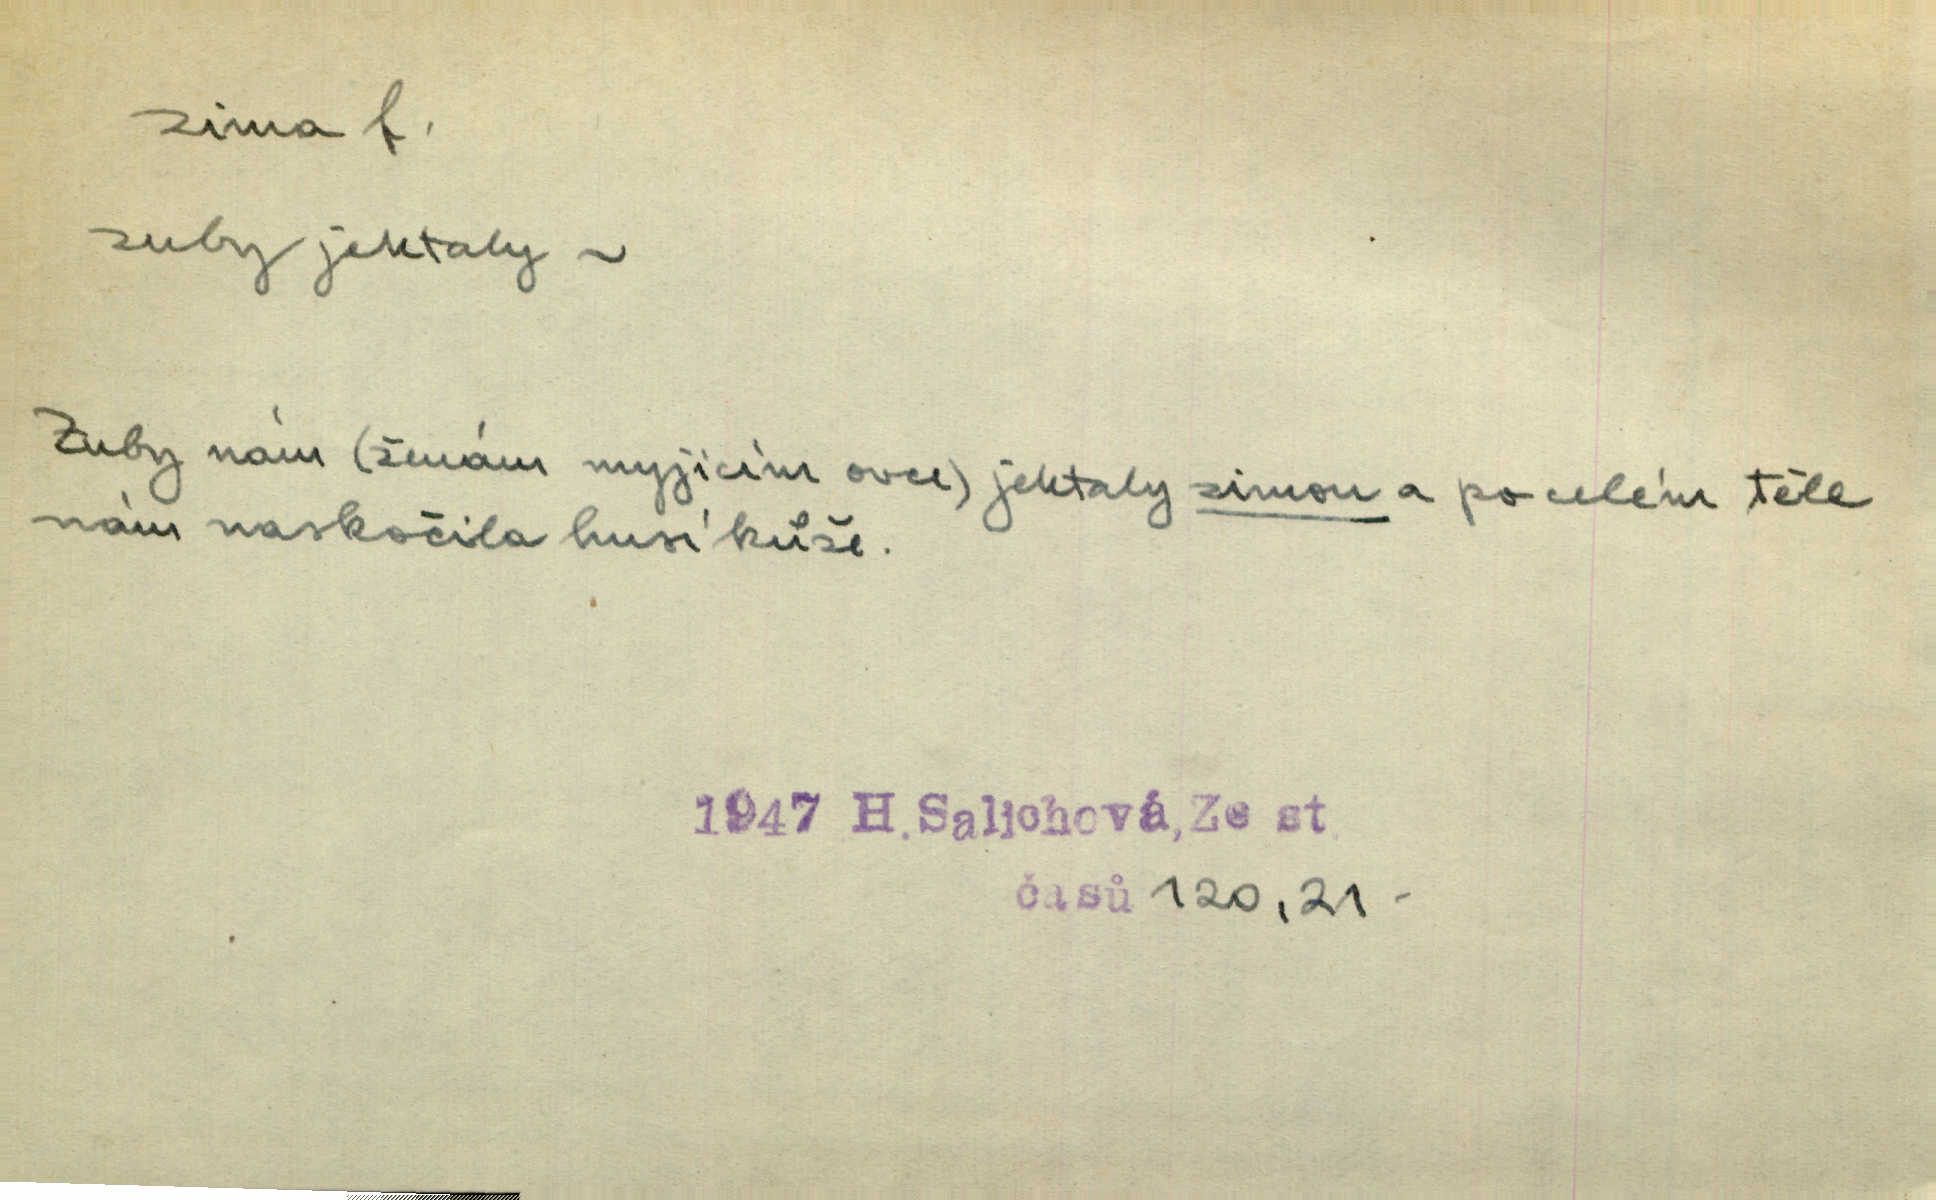 zima f.
zuby jektaly ~
Zuby nám (ženám myjícím ovce) jektaly zimou a po celém těle
nám naskočila husí kůže.
1947 H.Salichová,Ze st.
časů 120,21-